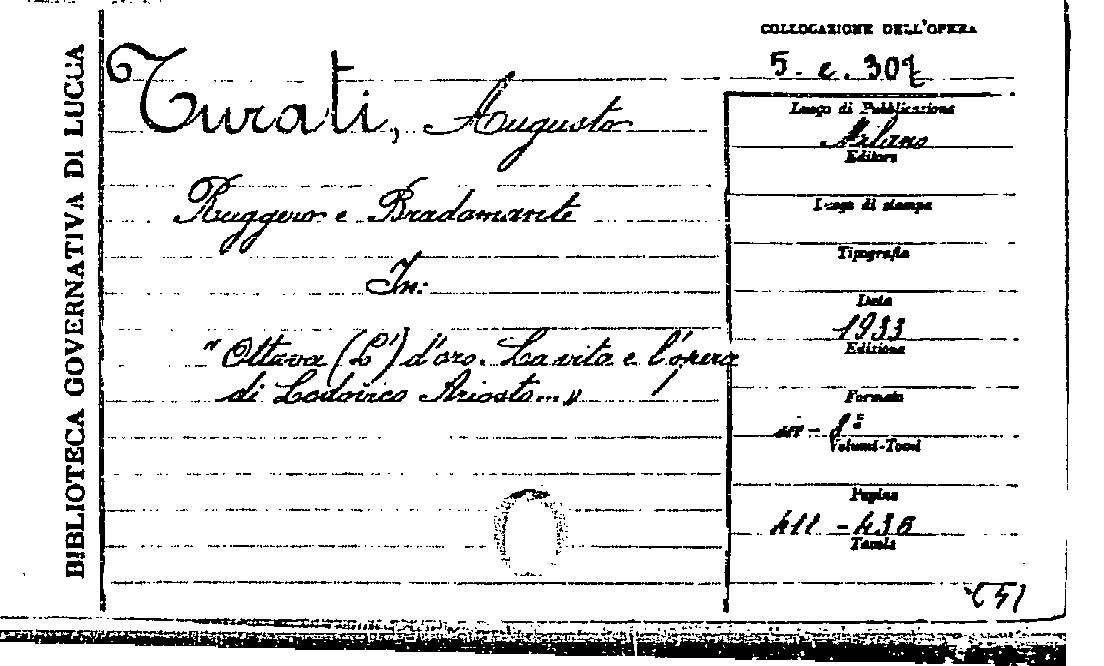 BIBLIOTECA GOVERNATIVA DI LUCCA
COLLOCAZIONE DELL'OPERA
5. e. 307
Turati, Augusto
Ruggero e Bradamante
In:
"Ottava (L') d'oro. La vita e l'opera
di Lodovico Ariosto..."
Luogo di Pubblicazione
Milano
Editore
Luogo di stampa
Tipografia
Data
1933
Edizione
Formato
in-8°
Volumi-Tomi
Pagine
411-436
Tavole